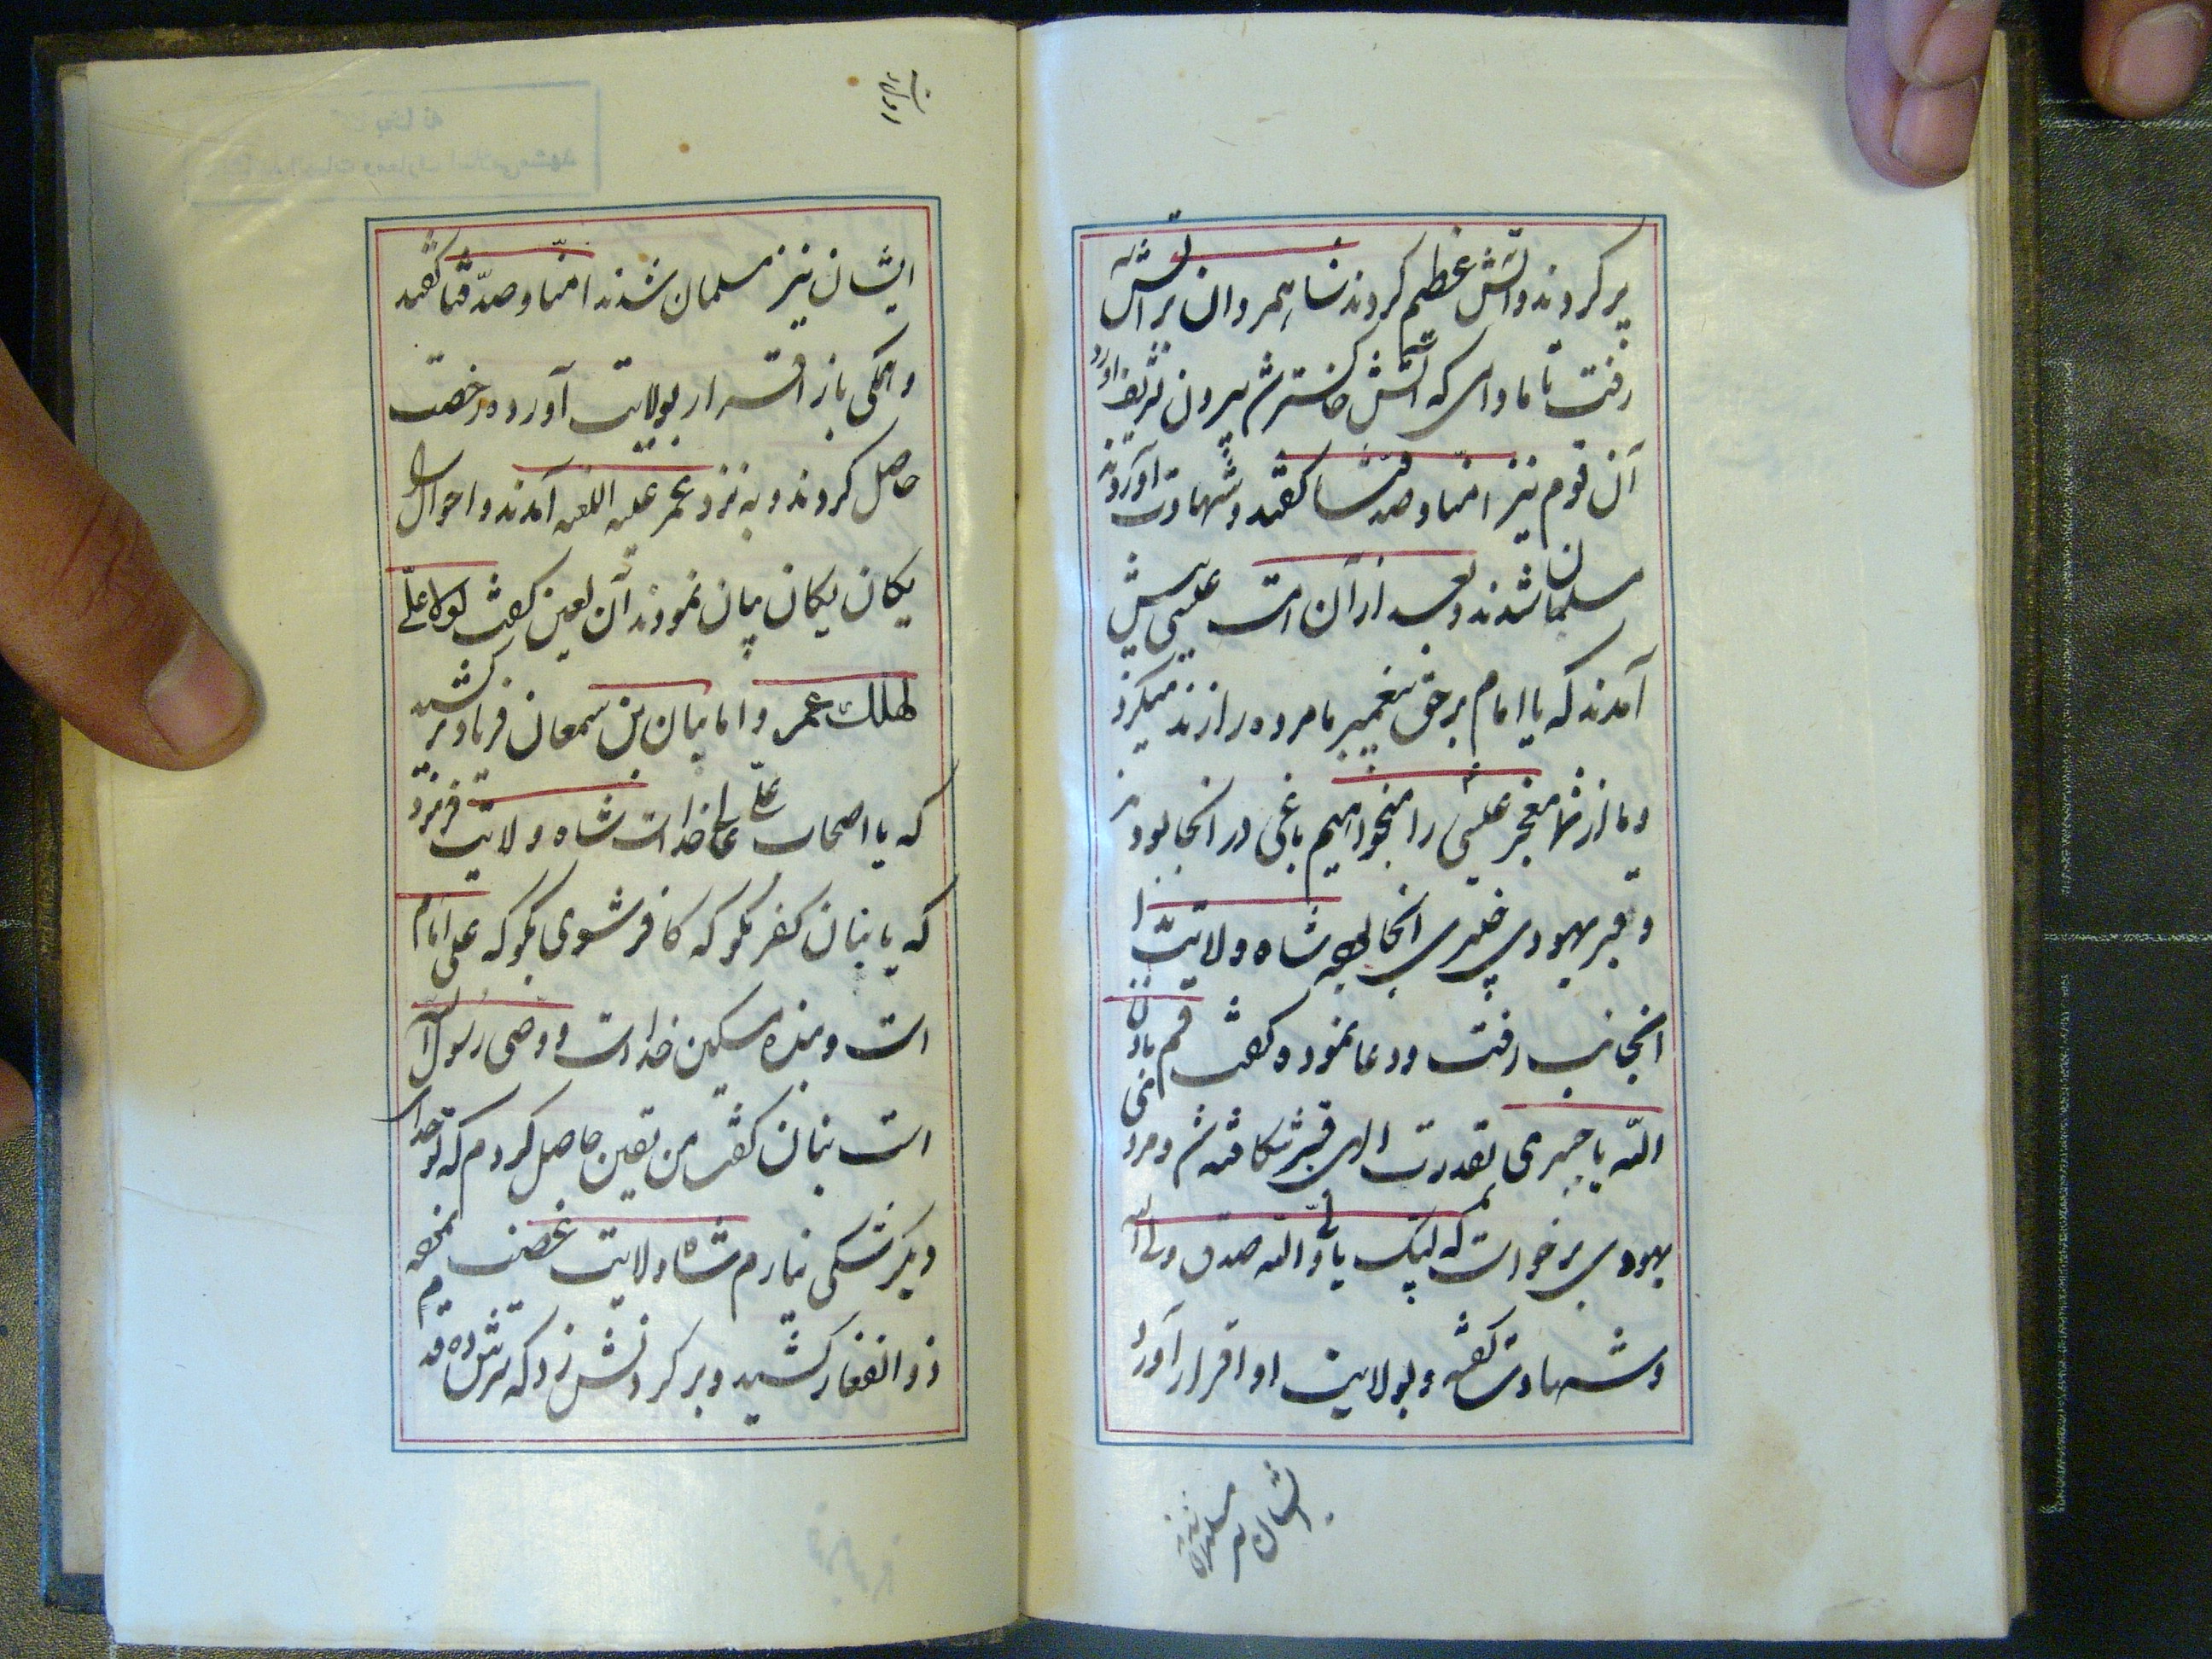 پر کردند و آتش عظیم کردند شاه مروان بر آتش
رفت تا مادامی که آتش خاکستر شد بیرون تشریف آورد
آن قوم نیز امنا و صدقنا گفتند و شهادت آوردند
مسلمان شدند و بعد از آن امت عیسی پیش
آمدند که یا امام بر حق پیغمبر ما مرده را زنده میکرد
و ما از شما معجز عیسی را میخواهیم باغی در انجا بود
و قبر یهودی خیبری انجا بود شاه ولایت
انجانب رفت و دعا نموده گفت قم باذن
الله یا خیبری بقدرت الهی قبر شکافته شد و مرد
یهودی برخواست که لبیک یا ولی الله صدق ولی الله
و شهادت گفته و بولایت او اقرار آورد
ایشان نیز مسلمان شدند
ایشان نیز مسلمان شدند امنا و صدقنا گفتند
و همگی باز اقرار بولایت آورده رخصت
حاصل کردند و به نزد عمر علیه اللعنه آمدند و احوال
یکان یکان بیان نمودند آن لعین گفت لولا علی
لهلك عمر و اما بنان بن سمعان فریاد بر کشید
که یا اصحاب علی خداست شاه ولایت فرمود
که یا بنان کفر مگو که کافر شوی بگو که علی امام
است و بنده مسکین خداست و وصی رسول
است بنان گفت من یقین حاصل کردم که تو خدا
دیگر شکی ندارم شاه ولایت غضب نموده
ذوالفقار کشید و بر گردنش زد که سرش ده قدم